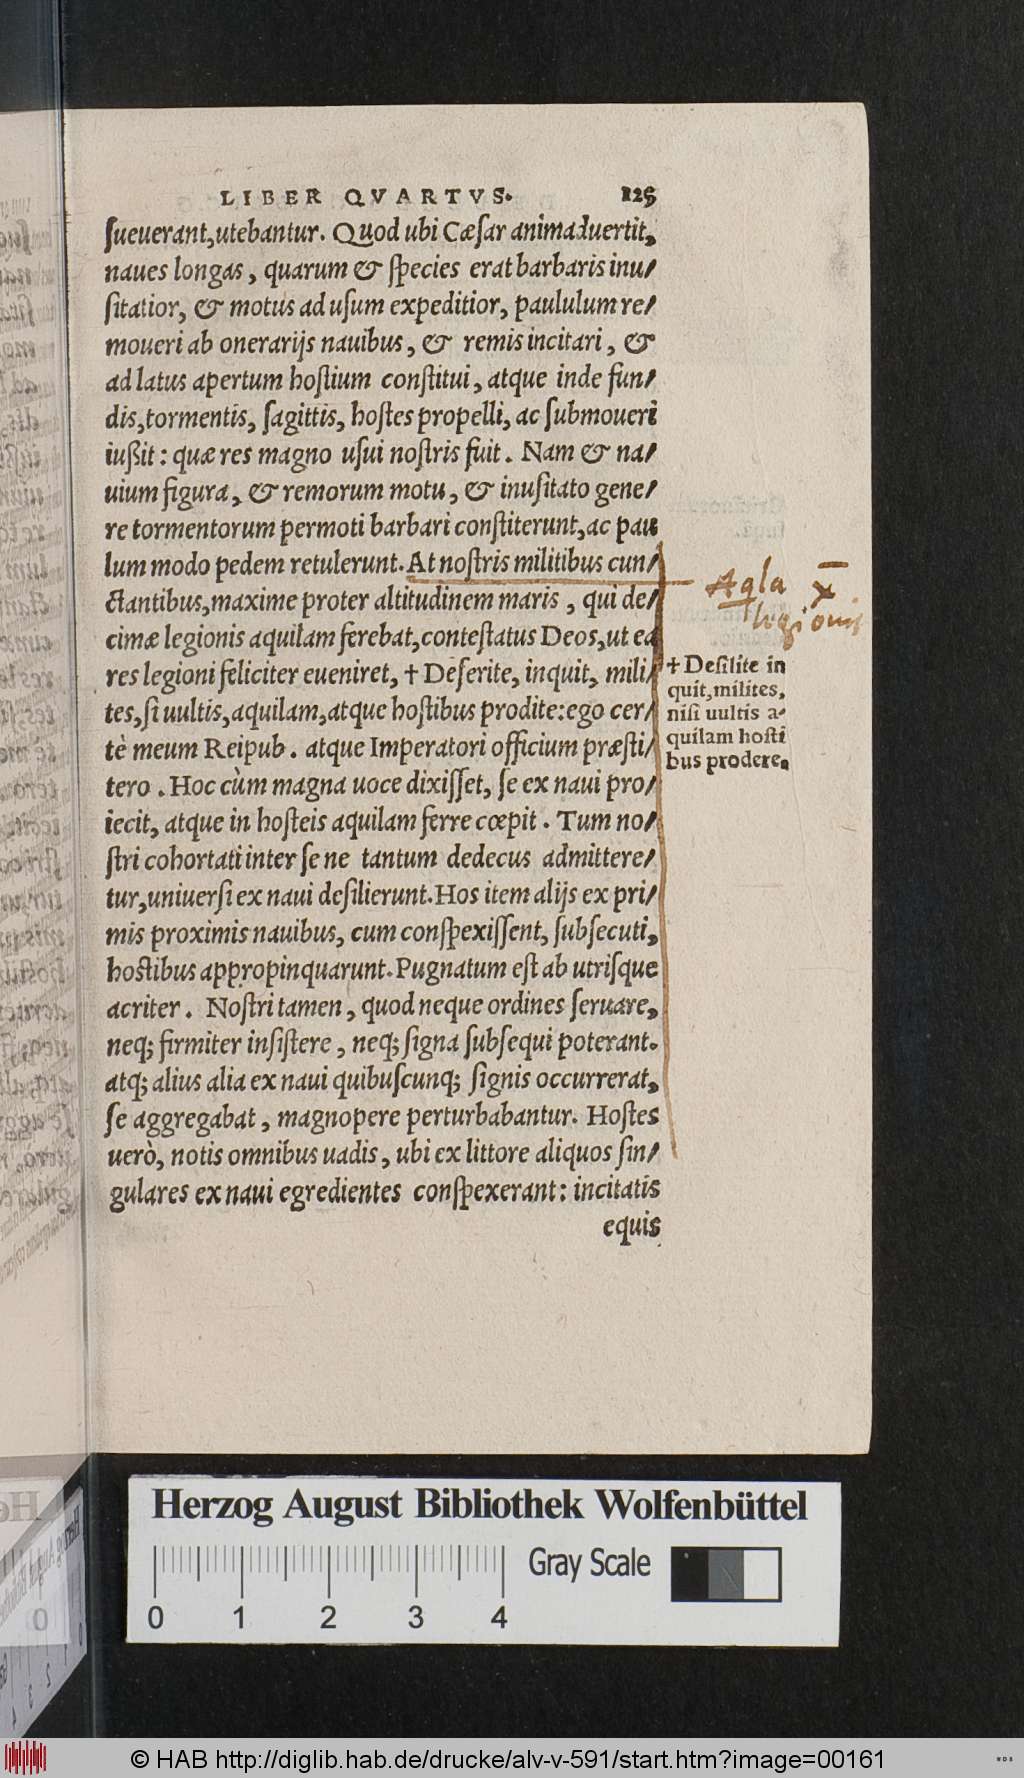 LIBER QVARTVS. 125
ſueuerant,utebantur. Quod ubi Cæſar animaduertit,
naues longas, quarum & ſpecies erat barbaris inu/
ſitatior, & motus ad uſum expeditior, paululum re/
moueri ab onerarijs nauibus, & remis incitari, &
ad latus apertum hoſtium conſtitui, atque inde fun/
dis,tormentis, ſagittis, hoſtes propelli, ac ſubmoueri
iußit: quæ res magno uſui noſtris fuit. Nam & na/
uium figura, & remorum motu, & inuſitato gene/
re tormentorum permoti barbari conſtiterunt,ac pau
lum modo pedem retulerunt. At noſtris militibus cun/
ctantibus,maxime proter altitudinem maris, qui de/
cimæ legionis aquilam ferebat,conteſtatus Deos,ut ea
res legioni feliciter eueniret, † Deſerite, inquit, mili/
tes,ſi uultis,aquilam,atque hoſtibus prodite:ego cer/
tè meum Reipub. atque Imperatori officium præſti/
tero. Hoc cùm magna uoce dixiſſet, ſe ex naui pro/
iecit, atque in hoſteis aquilam ferre cœpit. Tum no/
ſtri cohortati inter ſe ne tantum dedecus admittere/
tur,uniuerſi ex naui deſilierunt.Hos item alijs ex pri/
mis proximis nauibus, cum conſpexiſſent, ſubſecuti,
hoſtibus appropinquarunt.Pugnatum eſt ab utriſque
acriter. Noſtri tamen, quod neque ordines ſeruare,
neq; firmiter inſiſtere, neq; ſigna ſubſequi poterant.
atq; alius alia ex naui quibuſcunq; ſignis occurrerat,
ſe aggregabat, magnopere perturbabantur. Hoſtes
uerò, notis omnibus uadis, ubi ex littore aliquos ſin/
gulares ex naui egredientes conſpexerant: incitatis
equis
Aqla X
legionis
† Deſilite in
quit,milites,
niſi uultis a-
quilam hoſti
bus prodere.
Herzog August Bibliothek Wolfenbüttel
Gray Scale
0 1 2 3 4
© HAB http://diglib.hab.de/drucke/alv-v-591/start.htm?image=00161